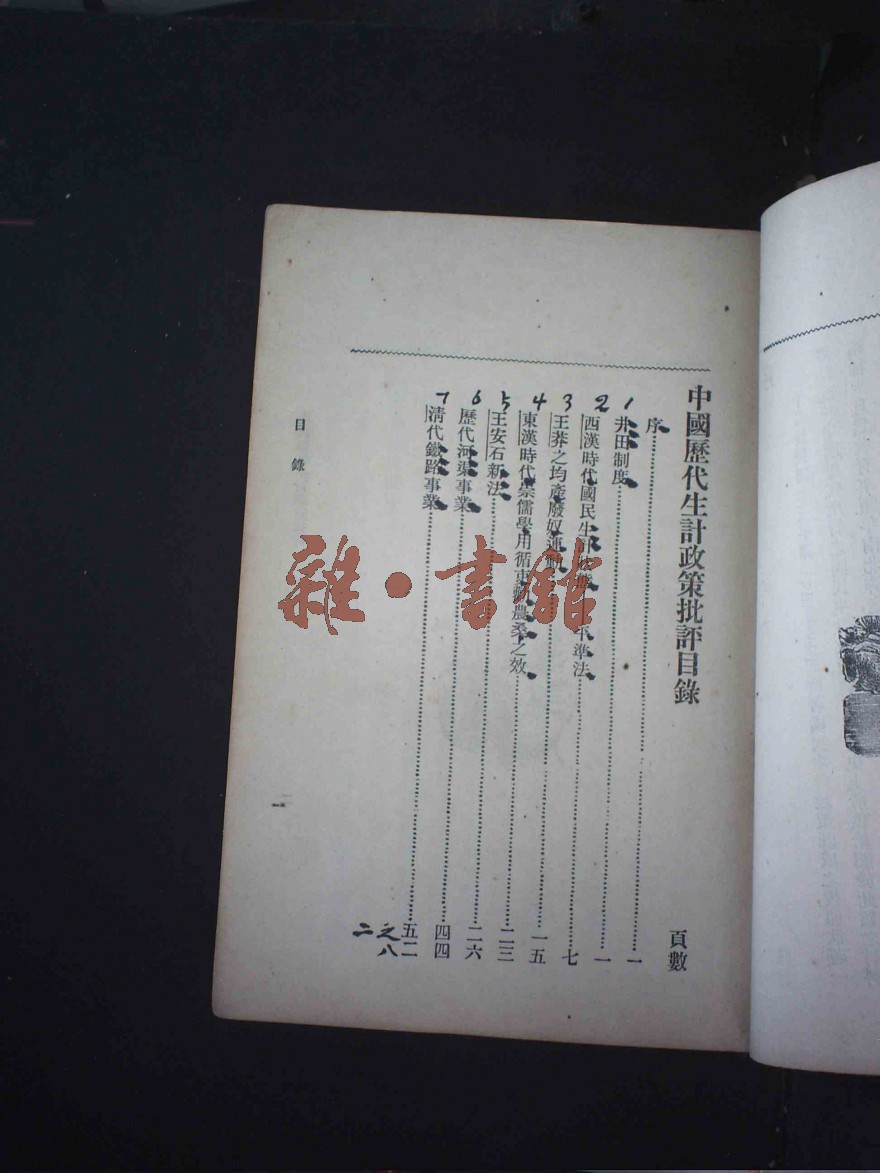 中國歷代生計政策批評目錄 頁數
序 一
1 井田制度 一
2 西漢時代國民生計 平準法 七
3 王莽之均產廢奴運動 一五
4 東漢時代崇儒學用循 農桑之效 二三
5 王安石新法 二六
6 歷代河渠事業 四四
7 清代鐵路事業 五二
之八
二
目錄
一
雜·書館